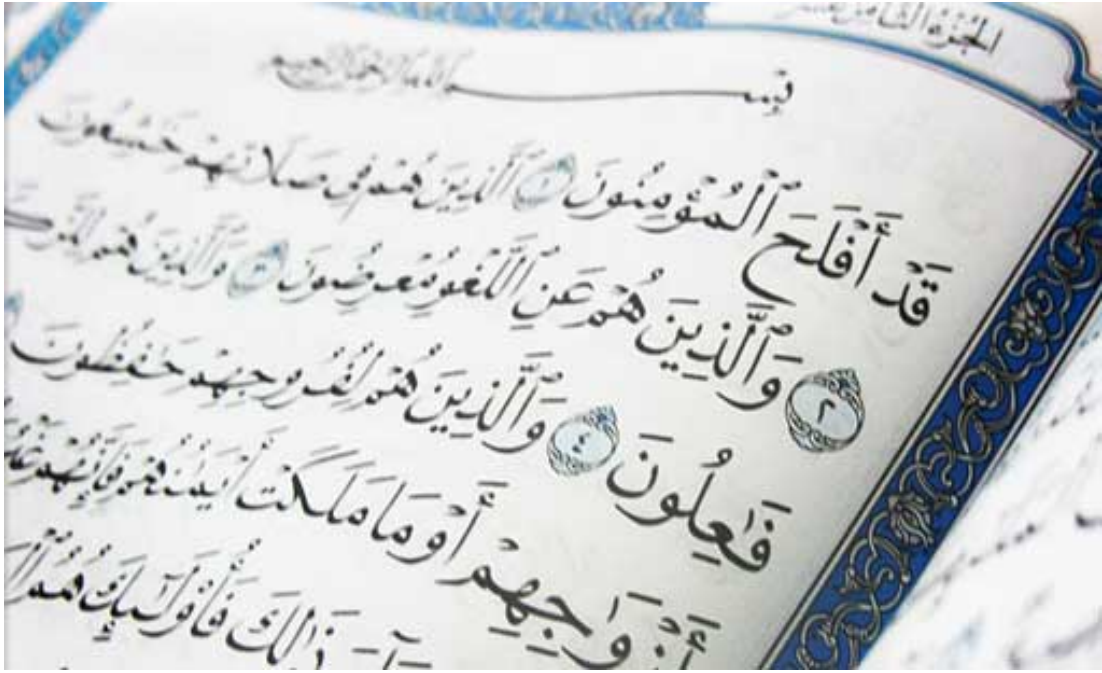 الجزء الثامن عشر
بِسْمِ ٱللَّهِ ٱلرَّحْمَٰنِ ٱلرَّحِيمِ
قَدْ أَفْلَحَ ٱلْمُؤْمِنُونَ ١ ٱلَّذِينَ هُمْ فِى صَلَاتِهِمْ خَٰشِعُونَ
٢ وَٱلَّذِينَ هُمْ عَنِ ٱللَّغْوِ مُعْرِضُونَ ٣ وَٱلَّذِينَ هُمْ
فَٰعِلُونَ ٤ وَٱلَّذِينَ هُمْ لِفُرُوجِهِمْ حَٰفِظُونَ
أَزْوَٰجِهِمْ أَوْ مَا مَلَكَتْ أَيْمَٰنُهُمْ فَإِنَّهُمْ
ذَٰلِكَ فَأُو۟لَٰٓئِكَ هُمُ